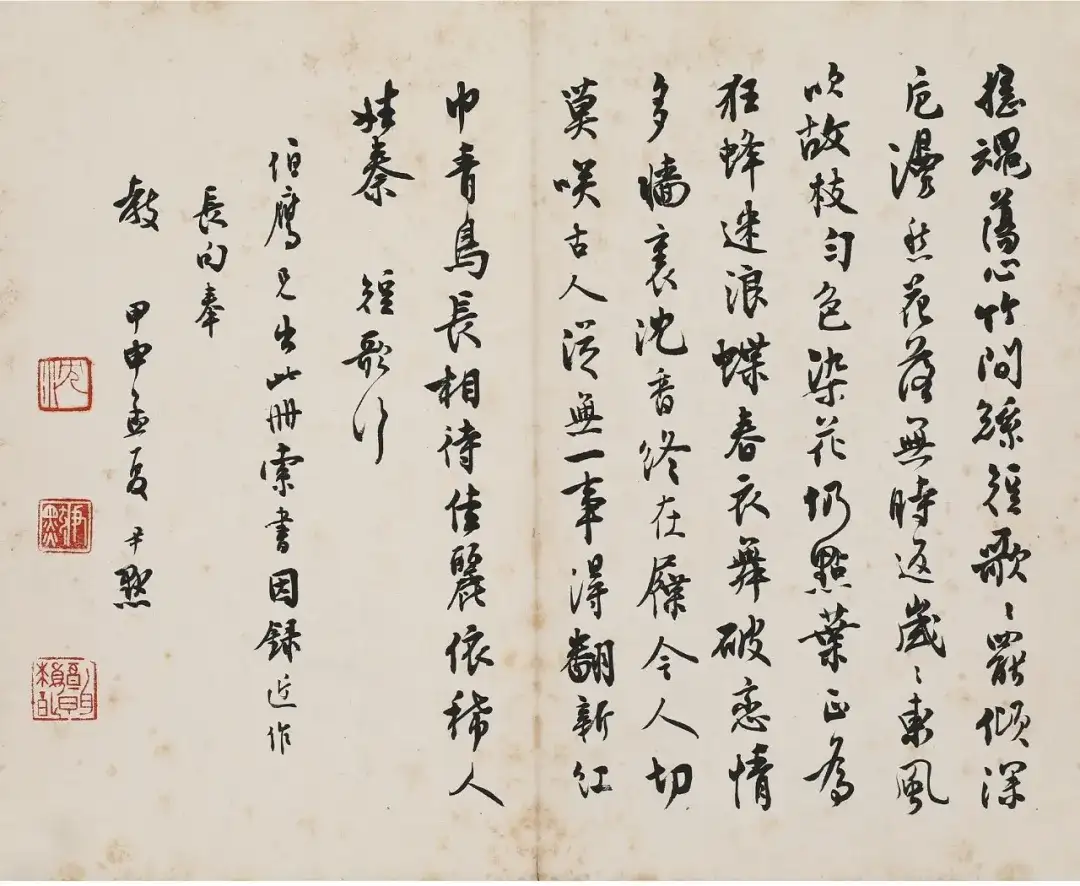 搖魂蕩心竹間絲短歌〻罷傾深
卮漫愁花落無時返歲〻東風
吹故枝勻色染花仍點葉正為
狂蜂迷浪蝶春衣舞破恋情
多墻裏沈香終在屧今人切
莫咲古人從無一事得翻新紅
巾青鳥長相待佳麗依稀人
姓秦 短歌行
伯鷹兄出此冊索書因録近作
長句奉
教 甲申孟夏 尹默
沈
尹默